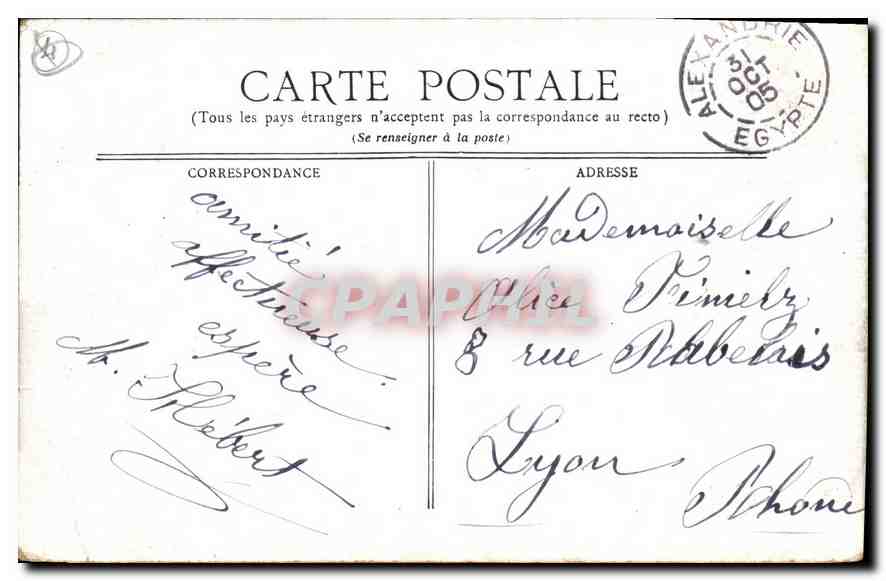 CARTE POSTALE
(Tous les pays étrangers n'acceptent pas la correspondance au recto)
(Se renseigner à la poste)
ALEXANDRIE
31
OCT
05
EGYPTE
CORRESPONDANCE
amitié
affectueuse
espère
M. Hébert
ADRESSE
Mademoiselle
Alice
8 rue Rabelais
Lyon
Rhone
CPAPHIL